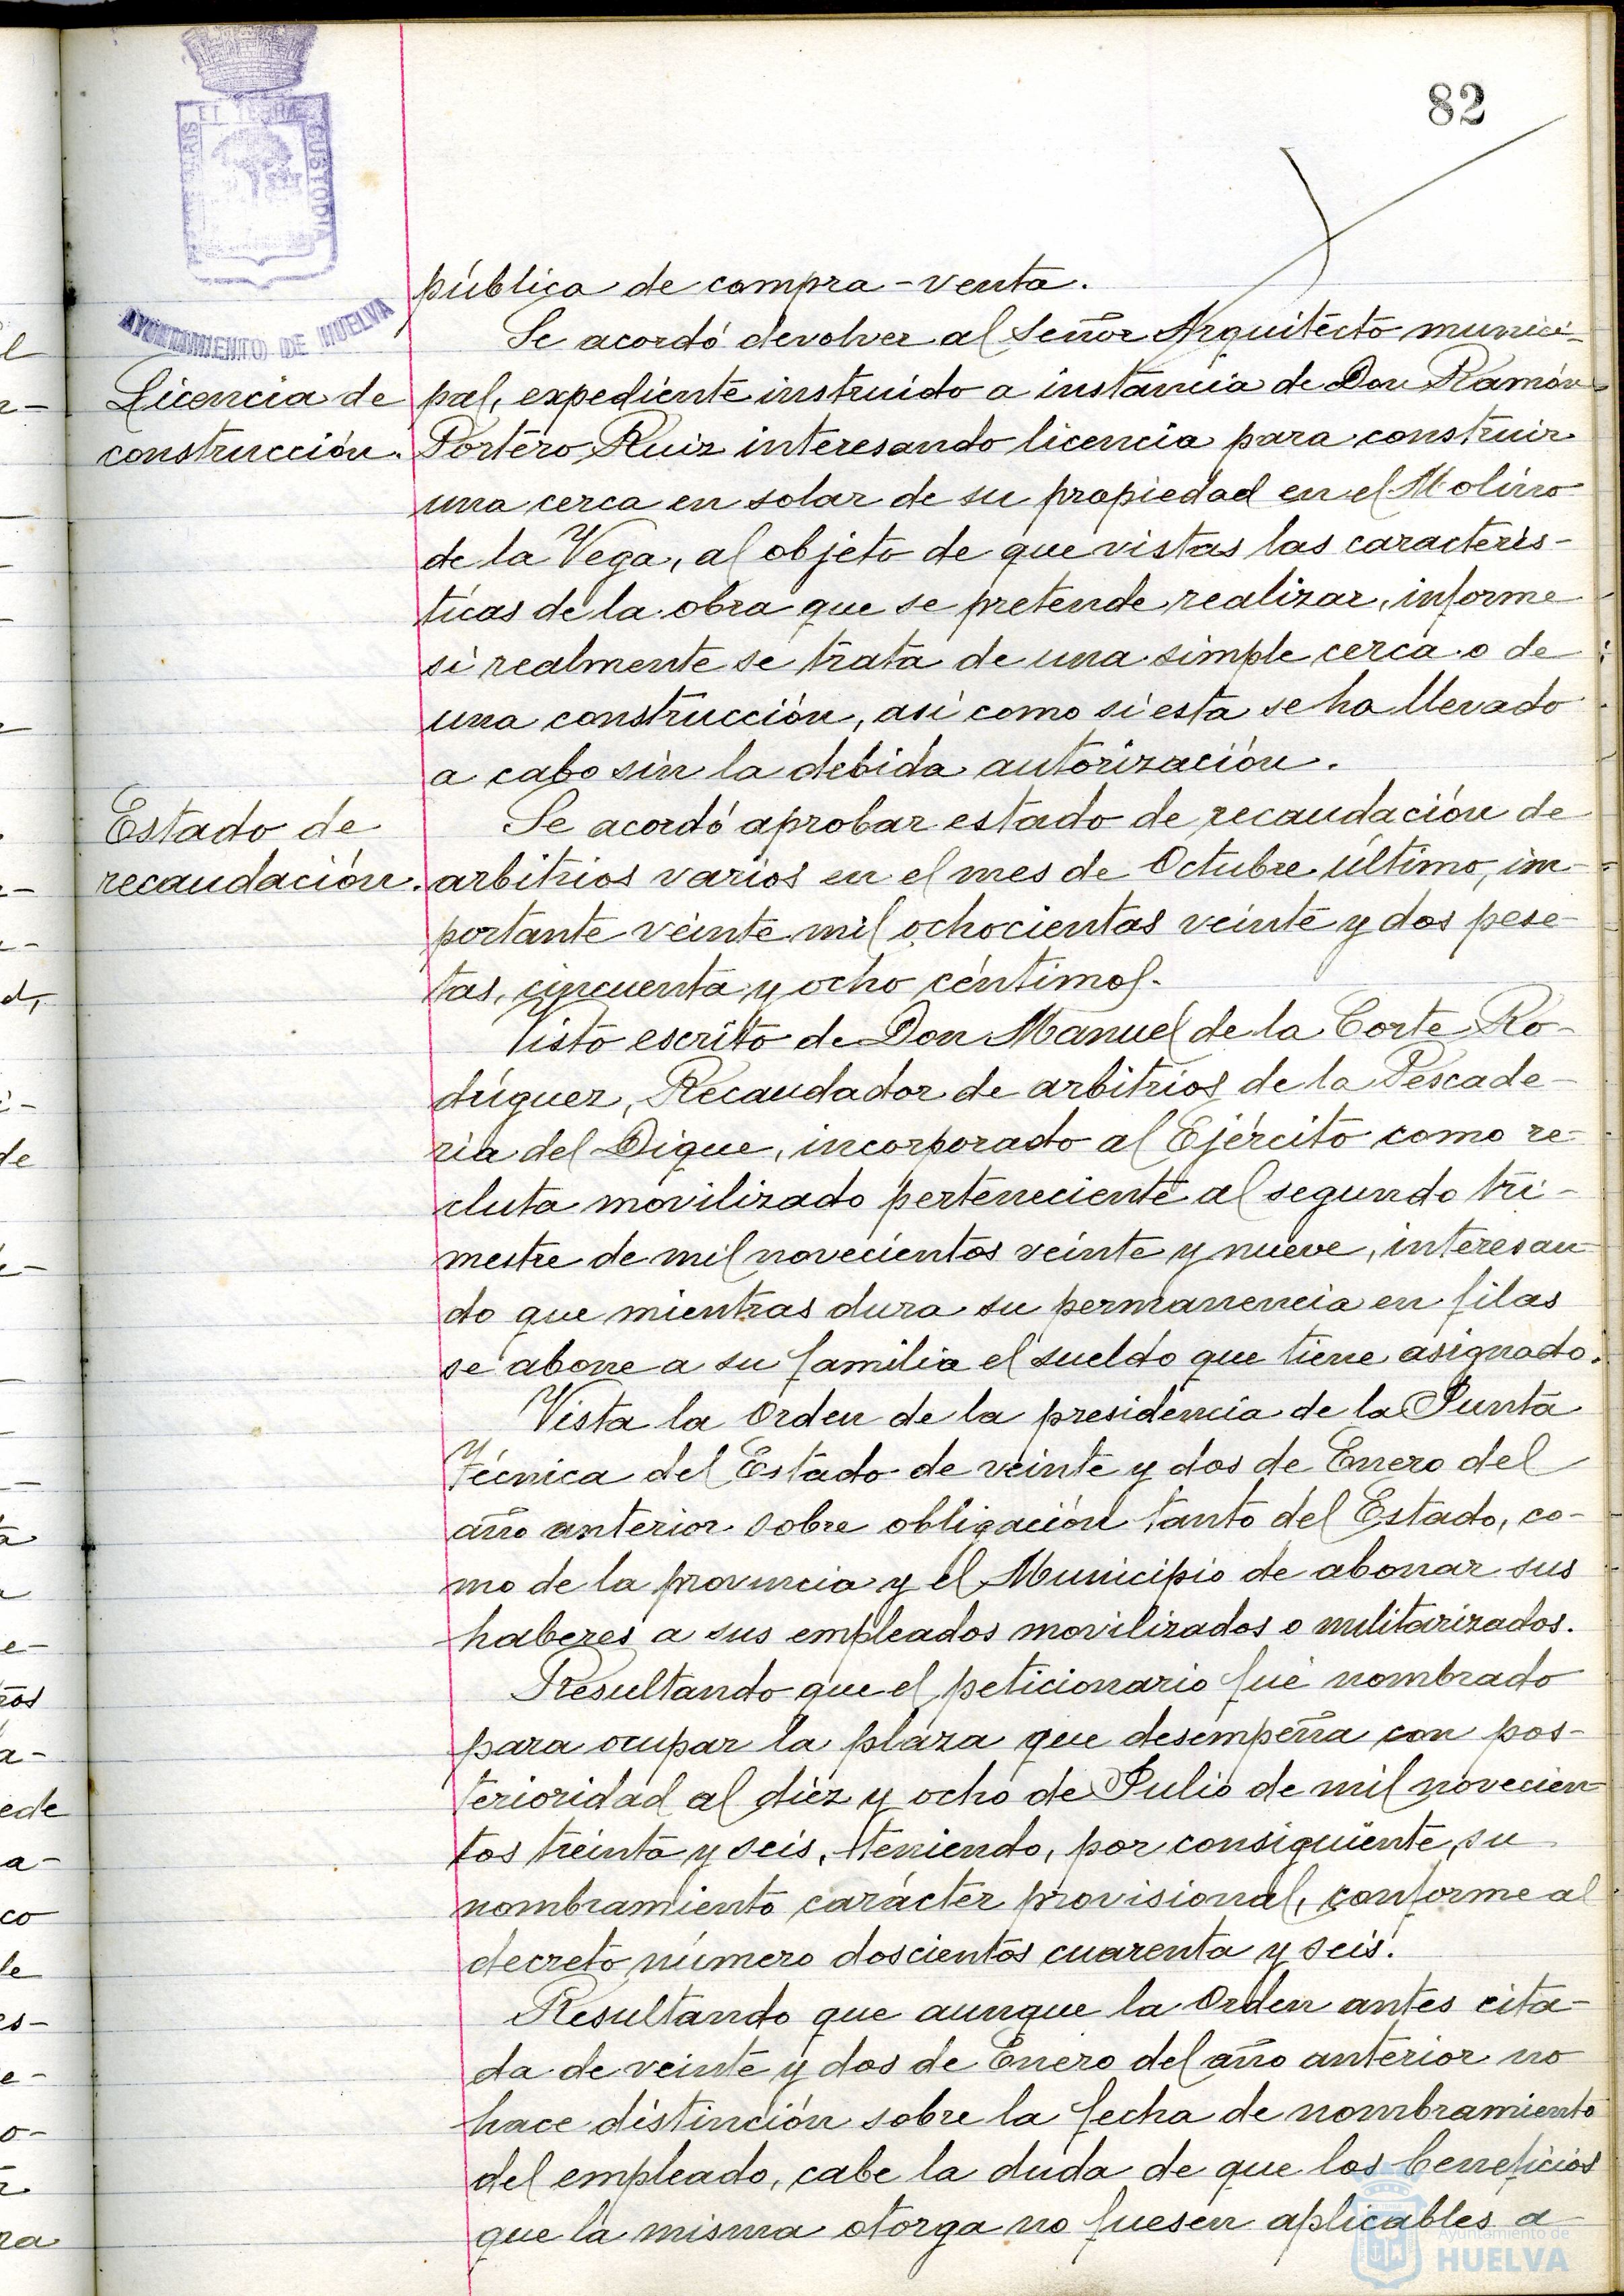 82
PORTUS MARIS ET TERRAE CUSTODIA
AYUNTAMIENTO DE HUELVA
pública de compra-venta.
Se acordó devolver al Señor Arquitecto munici-
Licencia de
construcción.
pal, expediente instruido a instancia de Don Ramón
Portero Ruiz interesando licencia para construir
una cerca en solar de su propiedad en el Molino
de la Vega, al objeto de que vistas las caracterís-
ticas de la obra que se pretende realizar, informe
si realmente se trata de una simple cerca o de
una construcción, así como si esta se ha llevado
a cabo sin la debida autorización.
Estado de
recaudación.
Se acordó aprobar estado de recaudación de
arbitrios varios en el mes de Octubre último, im-
portante veinte mil ochocientas veinte y dos pese-
tas, cincuenta y ocho céntimos.
Visto escrito de Don Manuel de la Corte Ro-
dríguez, Recaudador de arbitrios de la Pescade-
ría del Dique, incorporado al Ejército como re-
cluta movilizado perteneciente al segundo tri-
mestre de mil novecientos veinte y nueve, interesan-
do que mientras dura su permanencia en filas
se abone a su familia el sueldo que tiene asignado.
Vista la Orden de la presidencia de la Junta
Técnica del Estado de veinte y dos de Enero del
año anterior sobre obligación tanto del Estado, co-
mo de la provincia y el Municipio de abonar sus
haberes a sus empleados movilizados o militarizados.
Resultando que el peticionario fué nombrado
para ocupar la plaza que desempeña con pos-
terioridad al diez y ocho de Julio de mil novecien-
tos treinta y seis, teniendo, por consiguiente, su
nombramiento carácter provisional, conforme al
decreto número doscientos cuarenta y seis.
Resultando que aunque la Orden antes cita-
da de veinte y dos de Enero del año anterior no
hace distinción sobre la fecha de nombramiento
del empleado, cabe la duda de que los beneficios
que la misma otorga no fuesen aplicables a
Ayuntamiento de
HUELVA